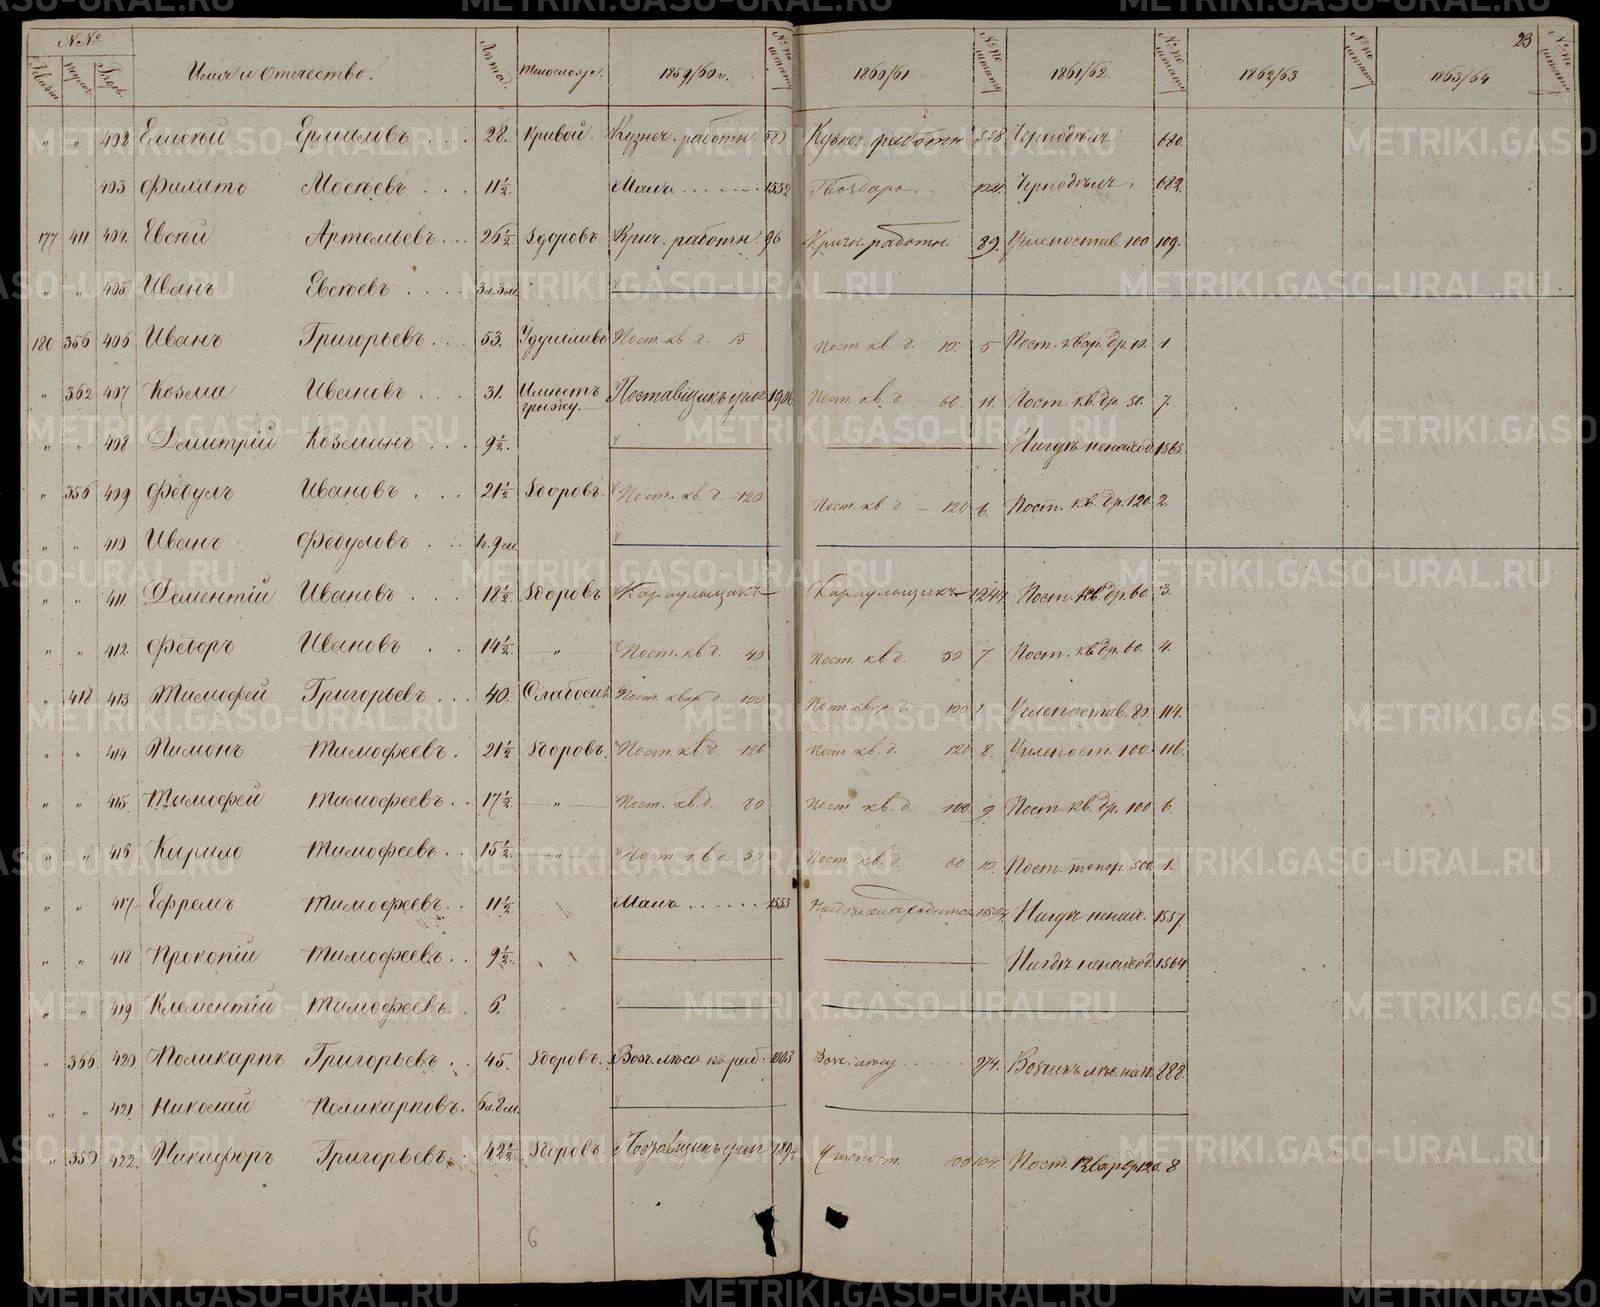 N№
Ревизии
подвор.
Глов.
Имя и Отечество.
Лѣта.
Телослож.
1859/60 г.
№ по штату
1860/61
№ по штату
1861/62.
№ по штату
1862/63
№ по штату
1863/64
23
№ по штату
" " 402 Елисѣй Ермиловъ . . . 28. Кривой. Кузнеч. работн. 589 Кузнеч. работн 558 Чернодѣлъ 680.
403 Филатъ Мосѣевъ . . . 11½ Малъ . . . . 1552 Гвоздарь . . Чернодѣлъ. 682.
177 411 404. Евсѣй Артемьевъ . . . 26½. Здоровъ Крич. работн. 96 Кричн. работн. 89. Углепостав. 100 109.
" " 405 Иванъ Евсѣевъ . . . . 3 л. 3 м.
180 356 406 Иванъ Григорьевъ . . . 53. Удушливъ Пост. кв. д. 15 Пост. кв. д. 10. 5 Пост. квар. др. 10. 1
" 362 407 Козма Ивановъ . . . 31. Имѣетъ грыжу. Поставщикъ угля 1906 Пост. кв. д. 60. 11. Пост. кв. др. 50. 7.
" " 408 Дмитрій Козминъ . . . 9½. Нигдѣ ненаход. 1563.
" 356 409 Федулъ Ивановъ . . . 21½ Здоровъ. Пост. кв. д. 120 Пост. кв. д. — 120 6. Пост. кв. др. 120. 2.
" " 410 Иванъ Федуловъ . . . 1 г. 9 м.
" " 411 Дементій Ивановъ . . . 18½. Здоровъ Караульщикъ — Караульщикъ 1247. Пост. кв. др. 60. 3.
" " 412. Федоръ Ивановъ . . 14½. — " — Пост. кв. д. 40 Пост. кв. д. 50 7. Пост. кв. др. 60. 4.
" 418 413 Тимофей Григорьевъ . . . 40. Слабосил. Пост. квар. д 100 Пост. квар. д. — 100 Углепостав. 80. 114.
" " 414 Пимонъ Тимофеевъ . 21½ Здоровъ. Пост. кв. д. 120 Пост. кв. д. 120 8. Углепост. 100. 116.
" " 415. Тимофей Тимофеевъ . . 17½. — " — Пост. кв. д. 80 Пост. кв. д. 100. 9. Пост. кв. др. 100 6.
" " 416 Кирило Тимофеевъ . . 15½. " Пост. кв. д. 50 Пост. кв. д. 60 10. Пост. топор. 500. 1.
" " 417 Ефремъ Тимофеевъ . . 11½ Малъ . . . . . . 1553 Нигдѣ ненаходится Нигдѣ ненах. 1557.
" " 418 Прокопій Тимофеевъ . . 9½. Нигдѣ ненаход. 1564
" " 419 Клементій Тимофеевъ . . 6.
" 366. 420 Поликарпъ Григорьевъ . . 45. Здоровъ. . Воз. лѣса къ раб. 1003 Воз. лѣсу . . . . 274. Возчикъ лѣс. 288.
" " 421 Николай Поликарповъ. 6 л. 8 м.
" 350 422. Никифоръ Григорьевъ. . . 42½ Здоровъ. Поставщикъ угля 1894. Углепост. 100 104. Пост. квар. др. 120. 8
6
METRIKI.GASO-URAL.RU